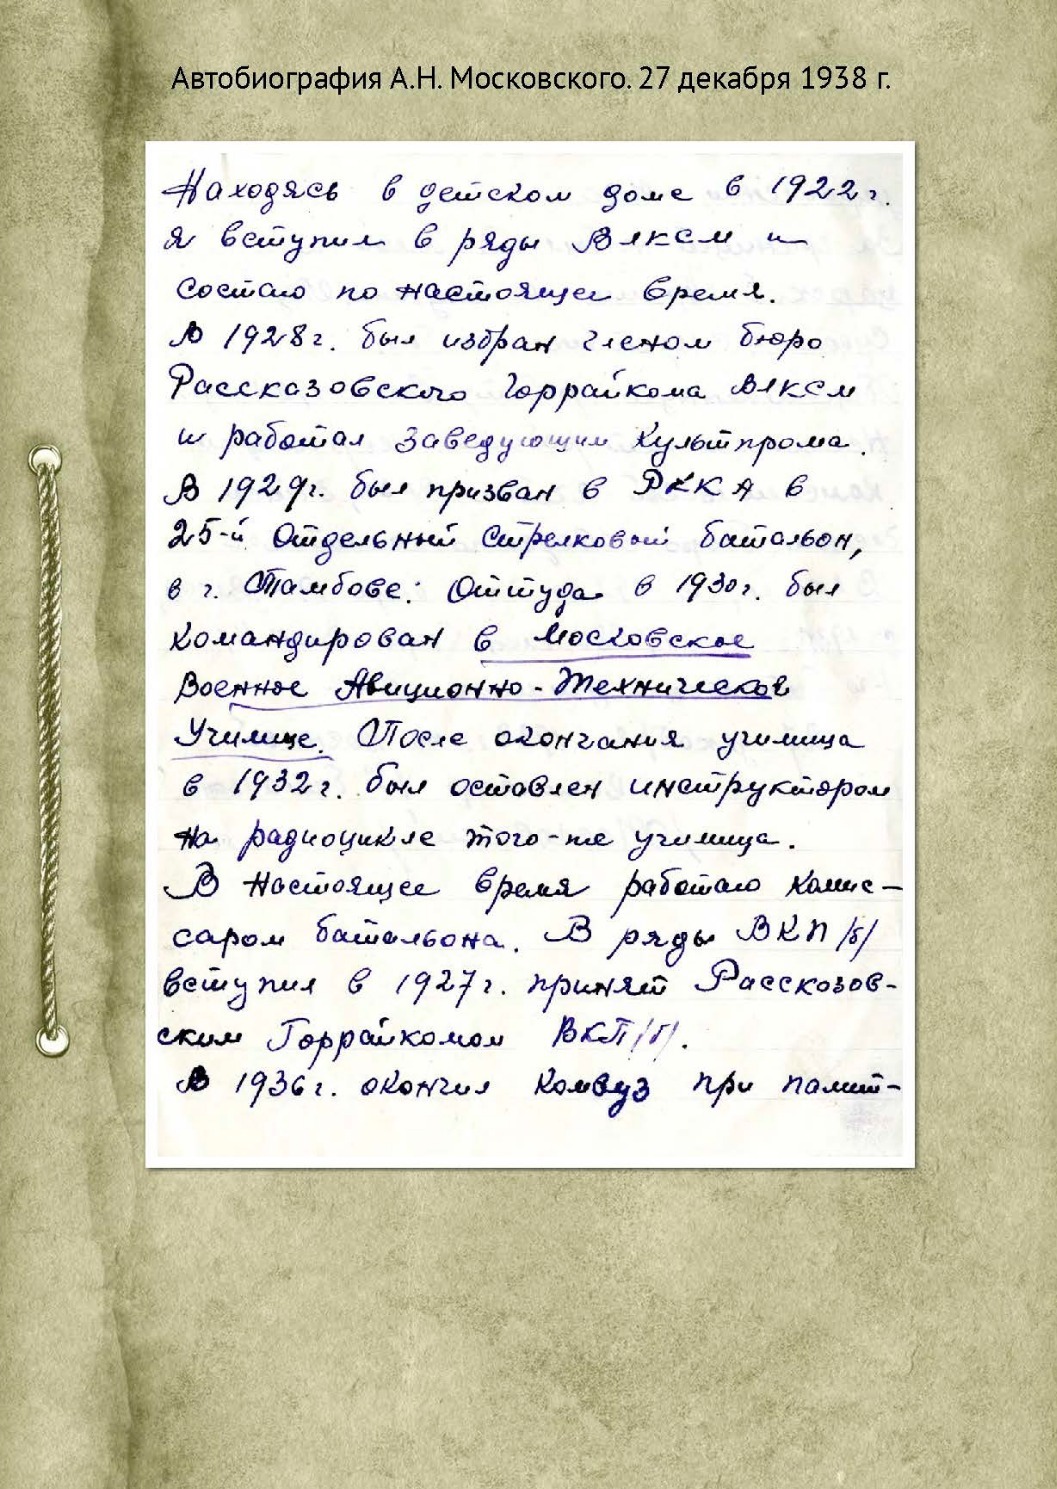 Автобиография А.Н. Московского. 27 декабря 1938 г.
Находясь в детском доме в 1922 г.
я вступил в ряды ВЛКСМ и
состаю по настоящее время.
В 1928 г. был избран членом бюро
Рассказовского Горрайкома ВЛКСМ
и работал заведующим Культпрома.
В 1929 г. был призван в РККА в
25-й Отдельный Стрелковый батальон,
в г. Тамбове. Оттуда в 1930 г. был
командирован в Московское
Военное Авиционно-Техническое
Училище. После окончания училища
в 1932 г. был оставлен инструктором
на радиоцикле того-же училища.
В настоящее время работаю комис-
саром батальона. В ряды ВКП/б/
вступил в 1927 г. принят Рассказов-
ским Горрайкомом ВКП/б/.
В 1936 г. окончил комвуз при полит-